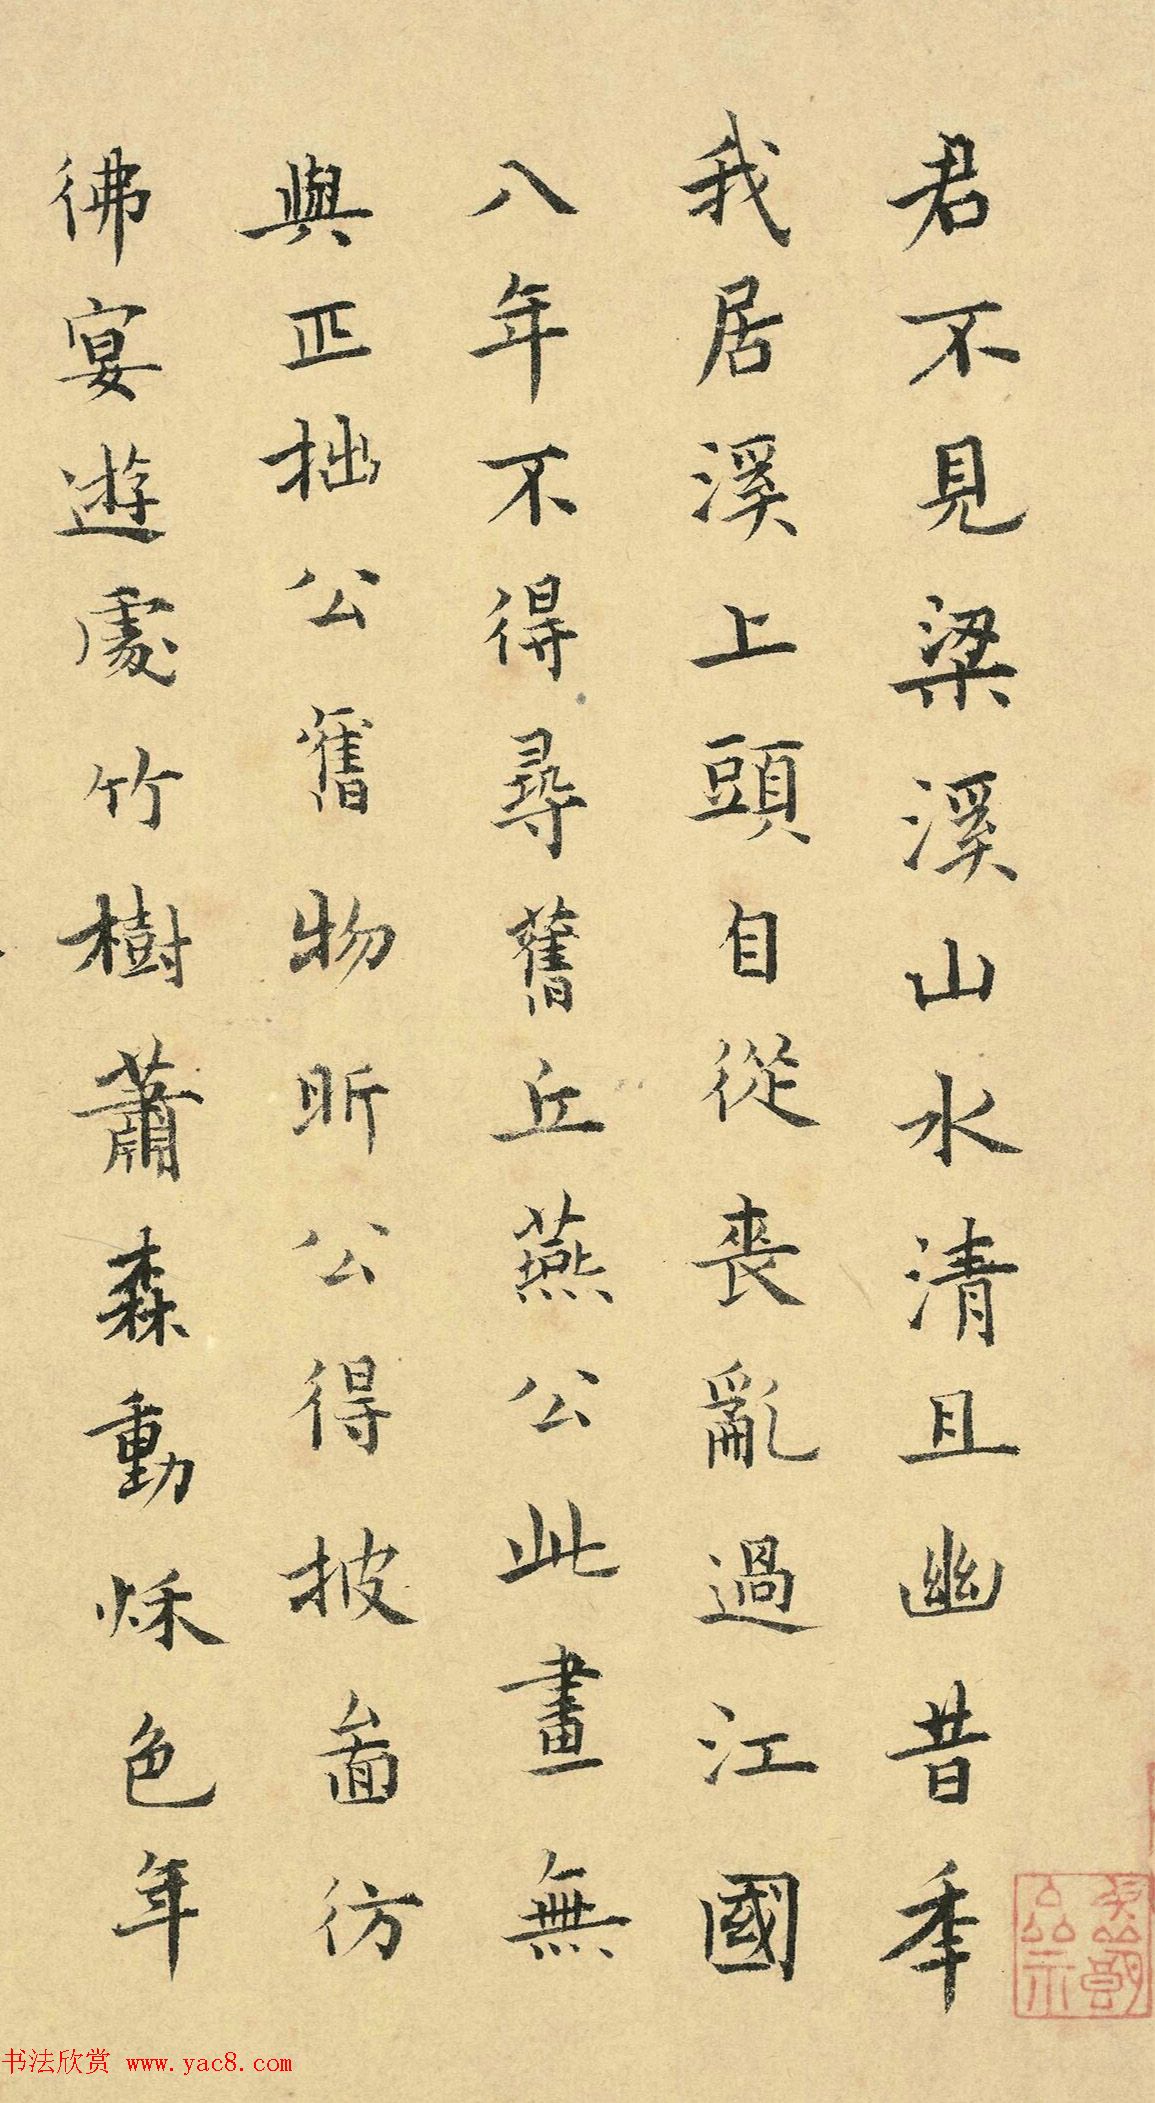 君不見梁溪山水清且幽昔秊
我居溪上頭自從喪亂過江國
八年不得尋舊丘燕公此畫無
與匹拙公舊物昕公得披啚彷
彿宴遊處竹樹蕭森動秌色年
书法欣赏 www.yac8.com